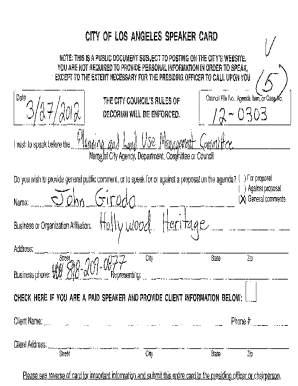 CITY OF LOS ANGELES SPEAKER CARD
NOTE: THIS IS A PUBLIC DOCUMENT SUBJECT TO POSTING ON THE CITY'S WEBSITE.
YOU ARE NOT REQUIRED TO PROVIDE PERSONAL INFORMATION IN ORDER TO SPEAK,
EXCEPT TO THE EXTENT NECESSARY FOR THE PRESIDING OFFICER TO CALL UPON YOU
(5)
Date
3/27/2012
THE CITY COUNCIL'S RULES OF
DECORUM WILL BE ENFORCED.
Council File No., Agenda Item, or Case No.
12-0303
I wish to speak before the Planning and Land Use Management Committee
Name of City Agency, Department, Committee or Council
Do you wish to provide general public comment, or to speak for or against a proposal on the agenda? ( ) For proposal
( ) Against proposal
Name: John Girodo (X) General comments
Business or Organization Affiliation: Hollywood Heritage
Address:
Street City State Zip
Business phone: 818-209-0877 Representing:
CHECK HERE IF YOU ARE A PAID SPEAKER AND PROVIDE CLIENT INFORMATION BELOW:
Client Name: Phone #:
Client Address:
Street City State Zip
Please see reverse of card for important information and submit this entire card to the presiding officer or chairperson.